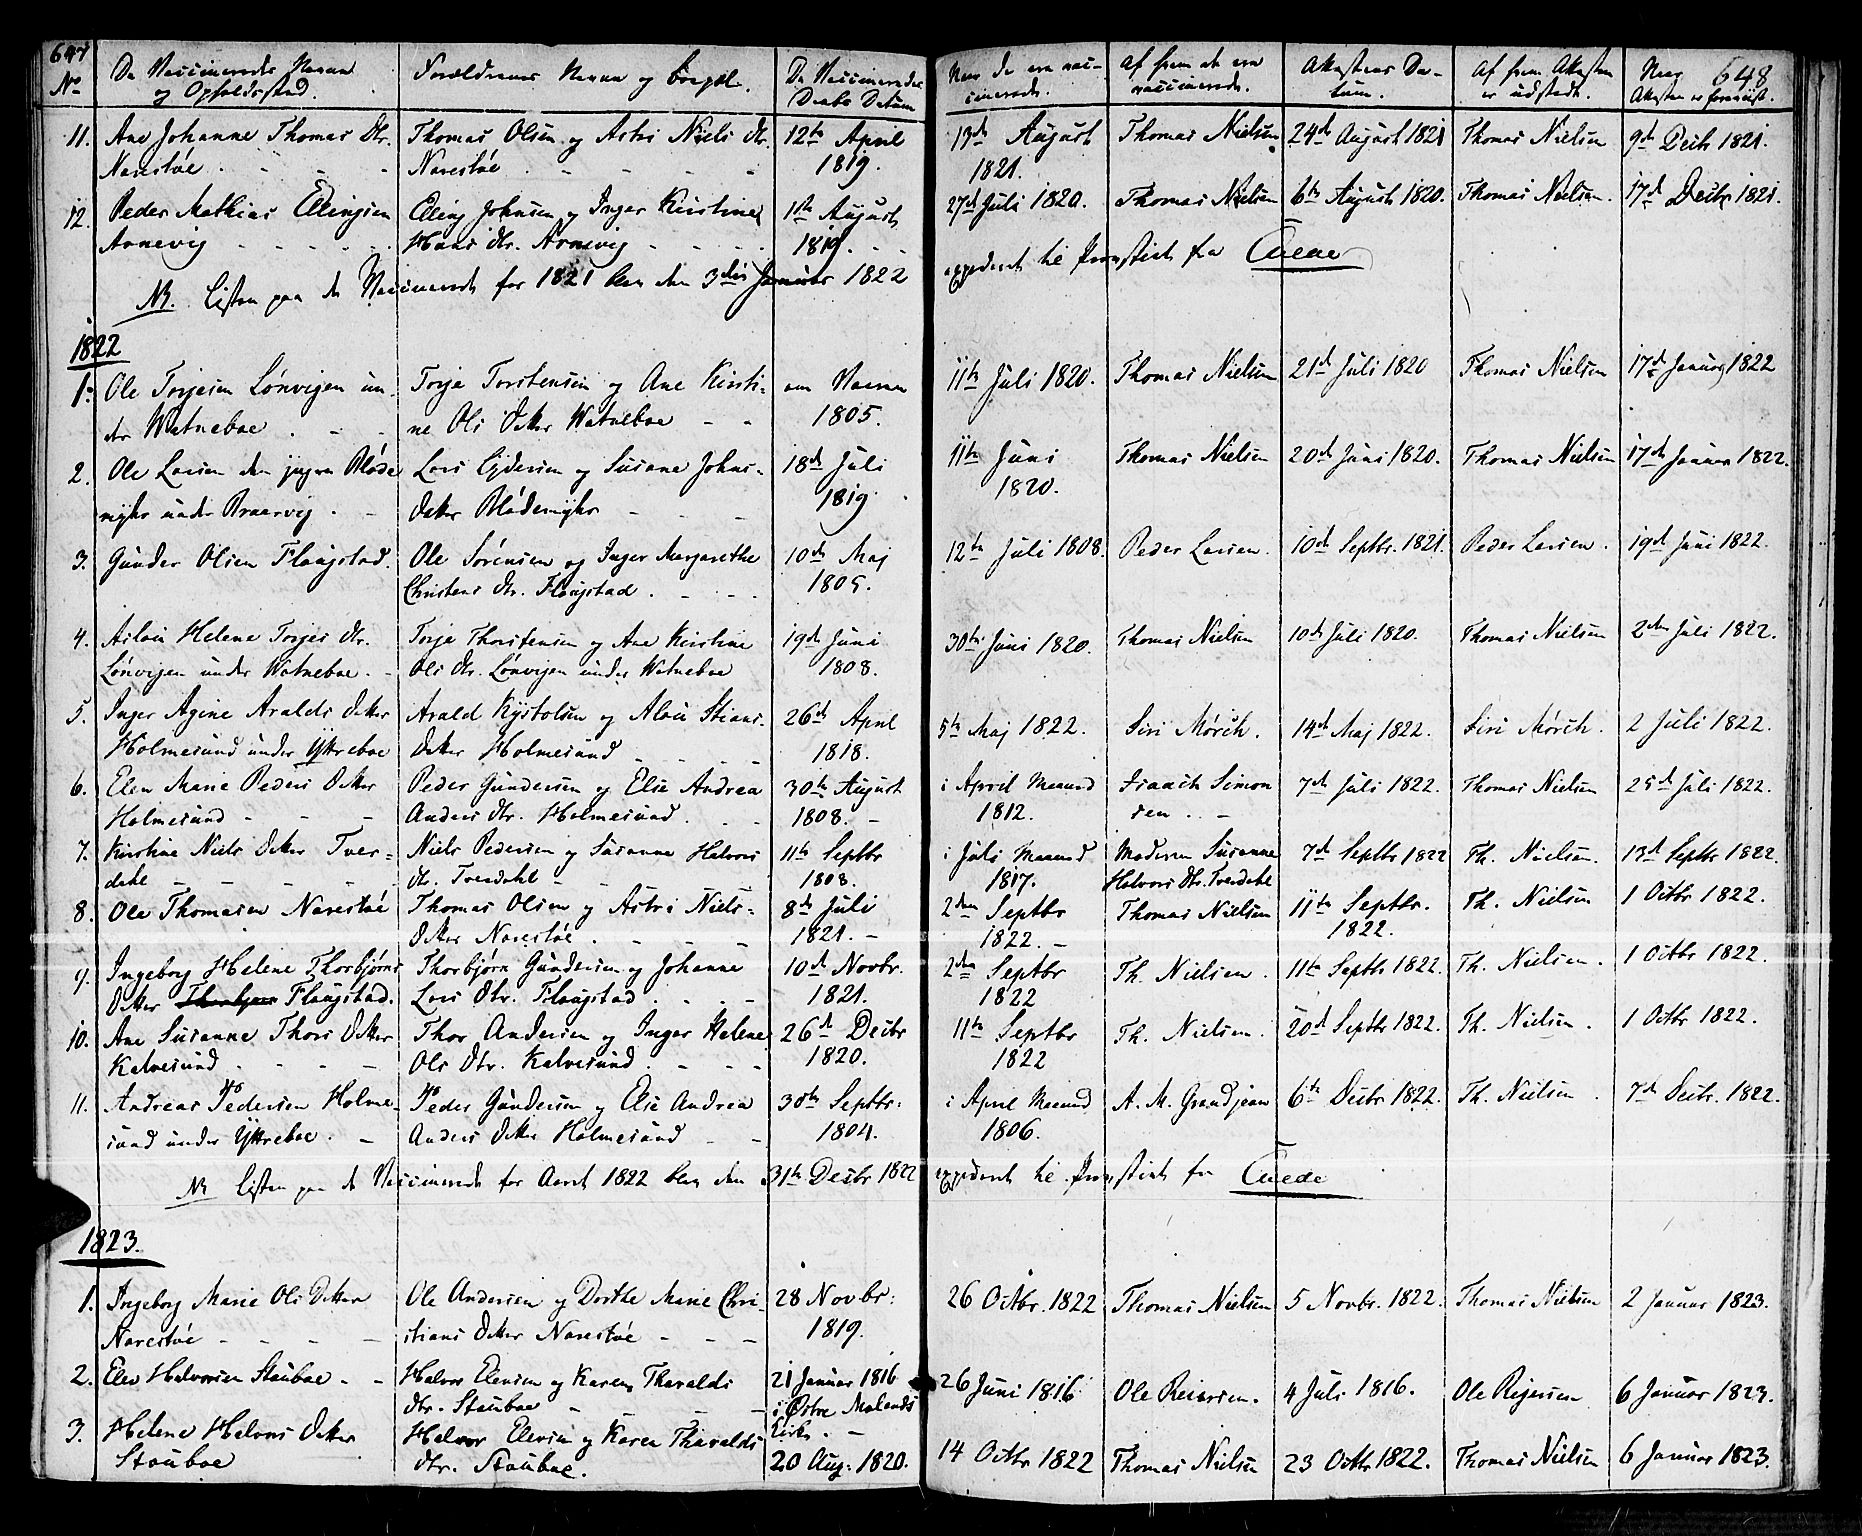 647
No
De Vaccineredes Navne
og Opholdssted.
Forældrenes Navne og Bopæl.
De Vaccineredes
Daabs Datum
Naar de ere vac-
cinerede.
Af hvem at ere
vaccinerede.
Attestens Da-
tum.
Af hvem Attesten
er udstedt.
Naar
Attesten er foreviist.
648
11. Ane Johanne Thomas Dtr. Thomas Olsen og Astri Niels Dtr. 12te April 13de August Thomas Nielsen 24de August 1821 Thomas Nielsen 9de Decbr 1821.
Narestøe Narestøe 1819. 1821.
12. Peder Mathias Ellingsen Elling Johnsen og Inger Kirstine 1ste August 27de Juli 1820. Thomas Nielsen 6te August 1820. Thomas Nielsen. 17de Decbr 1821.
Arnevig Hans Dtr. Arnevig 1819.
NB. Listen paa de Vaccinerede for 1821 blev den 3die Januar 1822 expederet til Provstiet fra Aaede
1822
1. Ole Torjesen Lønvigen un- Torje Torstensen og Ane Kirsti- 11te Juli 1820. Thomas Nielsen 21de Juli 1820 Thomas Nielsen 17de Januar 1822
der Watneboe ne Ols Datter Watneboe 1805.
2. Ole Larsen den yngre Bløde Lars Ejdersen og Susane Johns- 18de Juli 11te Juni Thomas Nielsen 20de Juni 1820. Thomas Nielsen 17de Januar 1822.
kjær under Braarvig Datter Blødekjær 1819 1820.
3. Gunder Olsen Flougstad. Ole Sørensen og Inger Margarethe 10de Maj 12te Juli 1808. Peder Larsen. 10de Septbr. 1821. Peder Larsen. 19de Juni 1822.
Christens Dtr. Flougstad 1805.
4. Aslau Helene Torjes Dtr. Torje Thorstensen og Ane Kirstine 19de Juni 30te Juni 1820. Thomas Nielsen 10de Juli 1820. Thomas Nielsen 2den Juli 1822.
Lønvigen under Watneboe. Ols Dtr. Lønvigen under Watneboe 1808.
5. Inger Agine Aralds Datter Arald Kjøstolsen og Aslou Stians- 26de April 5te Maj 1822. Siri Mørch. 14de Maj 1822. Siri Mørch. 2 Juli 1822.
Holmesund under Yttreboe Datter Holmesund 1818.
6. Elen Marie Peders Datter Peder Gundersen og Else Andrea 30te August i April Maaned Isaach Simon 7de Juli 1822. Thomas Nielsen 25de Juli 1822.
Holmesund Anders Dtr. Holmesund. 1808. 1812. sen
7. Kirstine Niels Datter Tver- Niels Pedersen og Susanne Halvors 11te Septbr i Juli Maaned Moderen Susanne 7de Septbr 1822 Th. Nielsen. 13de Septbr 1822.
dahl Dtr. Tverdahl 1808. 1817. Halvors Dtr. Tverdahl
8. Ole Thomasen Narestøe Thomas Olsen og Astri Niels- 8de Juli 2den Septbr Thomas Nielsen 11te Septbr. Th. Nielsen 1 Octbr 1822.
Datter Narestøe 1821. 1822. 1822.
9. Ingeborg Helene Thorbjørns Thorbjørn Gundersen og Johanne 10de Novbr. 2den Septbr Th. Nielsen. 11te Septbr 1822. Th. Nielsen. 1 Octbr 1822.
Datter Flougstad. Lars Dtr. Flougstad 1821. 1822
10. Ane Susanne Thors Datter Thor Andersen og Inger Helene 26de Decbr 11te Septbr Th. Nielsen. 20de Septbr 1822. Th. Nielsen. 1 Octbr 1822.
Kalvesund Ols Dtr. Kalvesund 1820. 1822
11. Andreas Pedersen Holme- Peder Gundersen og Else Andrea 30te Septbr. i April Maaned A. M. Grandjean 6te Decbr 1822. Th. Nielsen 7de Decbr. 1822.
sund under Yttreboe. Anders Datter Holmesund 1804. 1806.
NB Listen paa de Vaccinerede for Aaret 1822 blev den 31te Decbr 1822 expederet til Provstiet fra Aaede
1823.
1. Ingeborg Marie Ols Datter Ole Andersen og Dorthe Marie Chri- 28 Novbr: 26 Octbr. 1822 Thomas Nielsen 5 Novbr. 1822. Thomas Nielsen 2 Januar 1823.
Narestøe stians Datter Narestøe 1819.
2. Elev Halvorsen Stauboe Halvor Elevsen og Karen Tharalds 21 Januar 1816 26 Juni 1816 Ole Reiersen. 4 Juli 1816. Ole Rejersen 6 Januar 1823.
Dtr. Stauboe i Østre Molands
Kirke.
3. Helene Halvors Datter Halvor Elevsen og Karen Tharalds 20 Aug: 1820. 14 Octbr 1822 Thomas Nielsen 23 Octbr 1822. Thomas Nielsen 6 Januar 1823.
Stauboe Dtr. Stauboe.